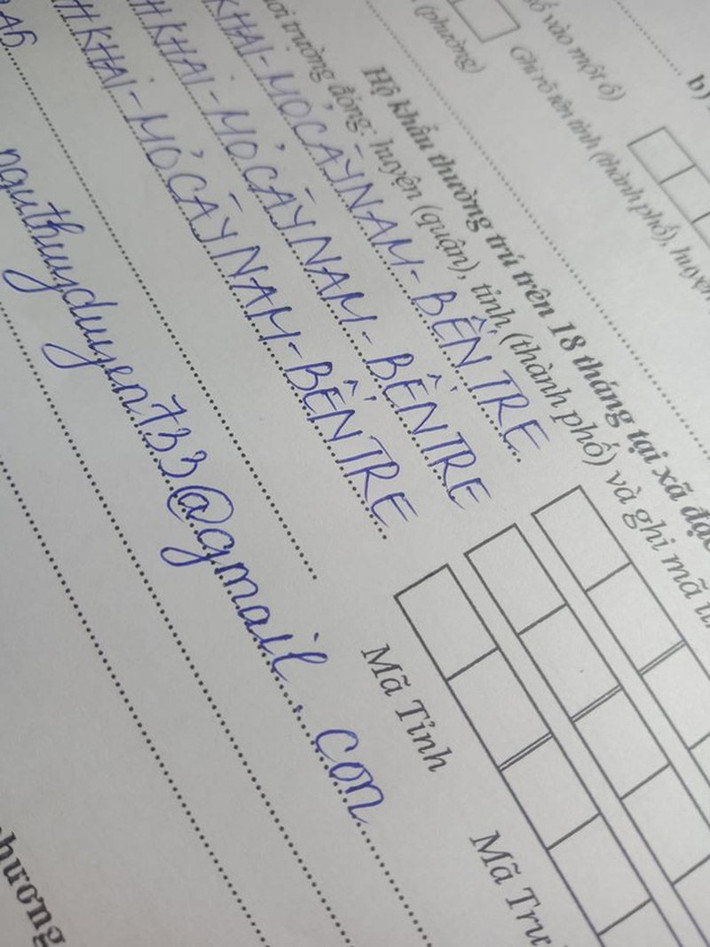 b)
số vào một ô)
Ghi rõ tên tỉnh (thành phố), huyện
(phường)
Hộ khẩu thường trú trên 18 tháng tại xã đặc
nơi trường đóng: huyện (quận), tỉnh (thành phố) và ghi mã
KHẢI-MỎ CÀY NAM-BẾN TRE
KHẢI-MỎ CÀY NAM-BẾN TRE
KHẢI-MỎ CÀY NAM-BẾN TRE
Mã Tỉnh
Mã Trư
nguthuyduyen733@gmail.con
hương